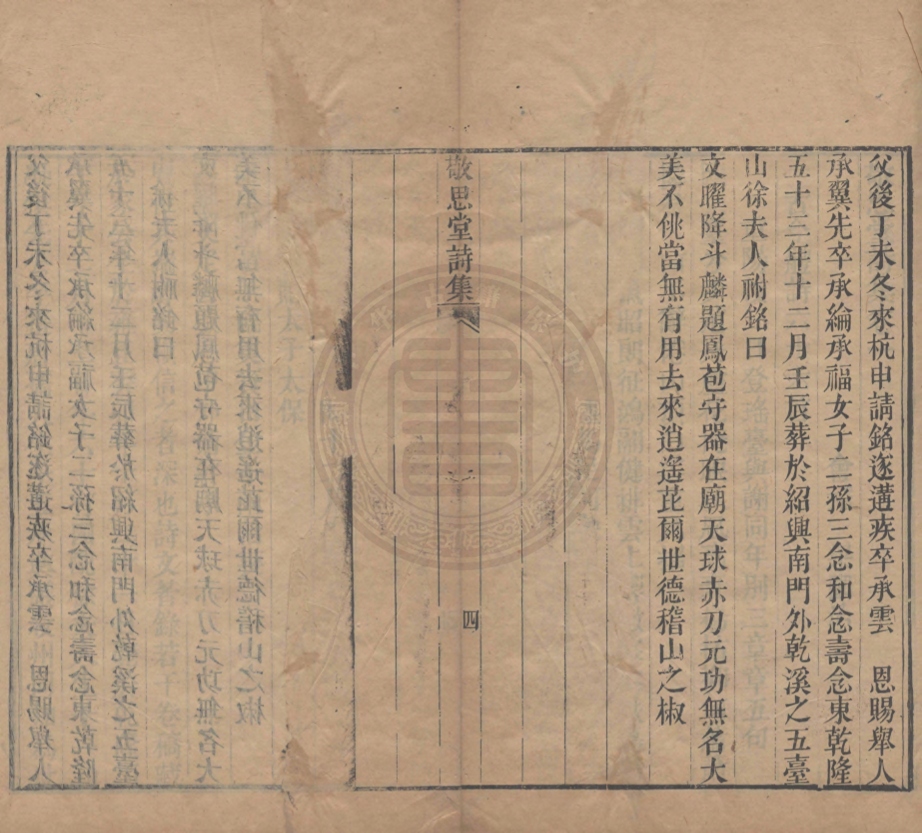 父後丁未冬來杭申請銘逐遘疾卒承雲　恩賜舉人
承翼先卒承綸承福女子二孫三念和念壽念東乾隆
五十三年十二月壬辰葬於紹興南門外乾溪之五臺
山徐夫人祔銘曰
文曜降斗麟題鳳苞守器在廟天球赤刀元功無名大
美不佻當無有用去來逍遙茈爾世德稽山之椒
敬思堂詩集
四